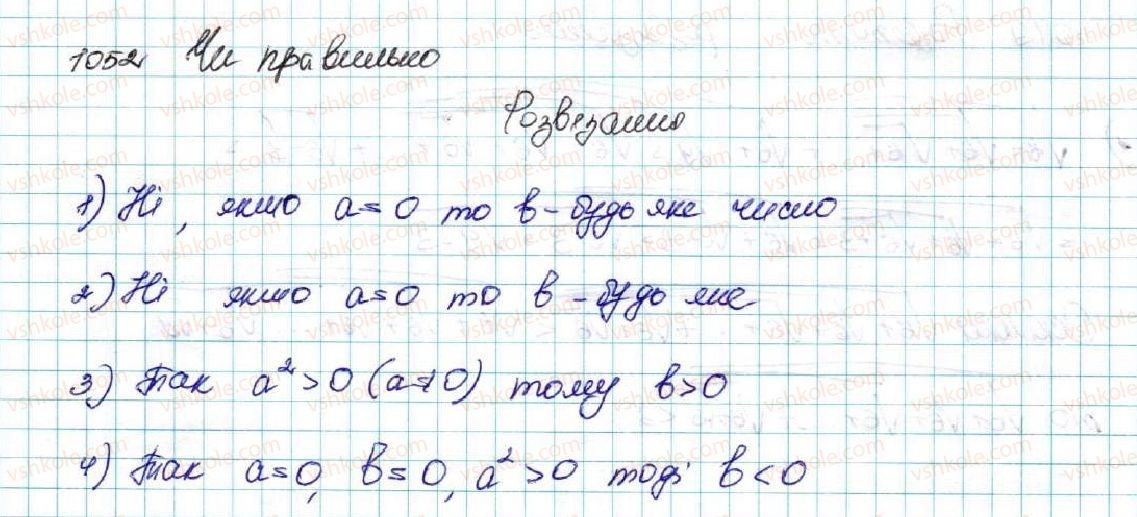 1052 Чи правильно
Розвязання
1) Ні, якщо a=0 то в-будь яке число
2) Ні якщо a=0 то в-будь яке
3) Так a²>0 (a≠0) тому в>0
4) Так a=0, в=0, a²>0 тоді в<0